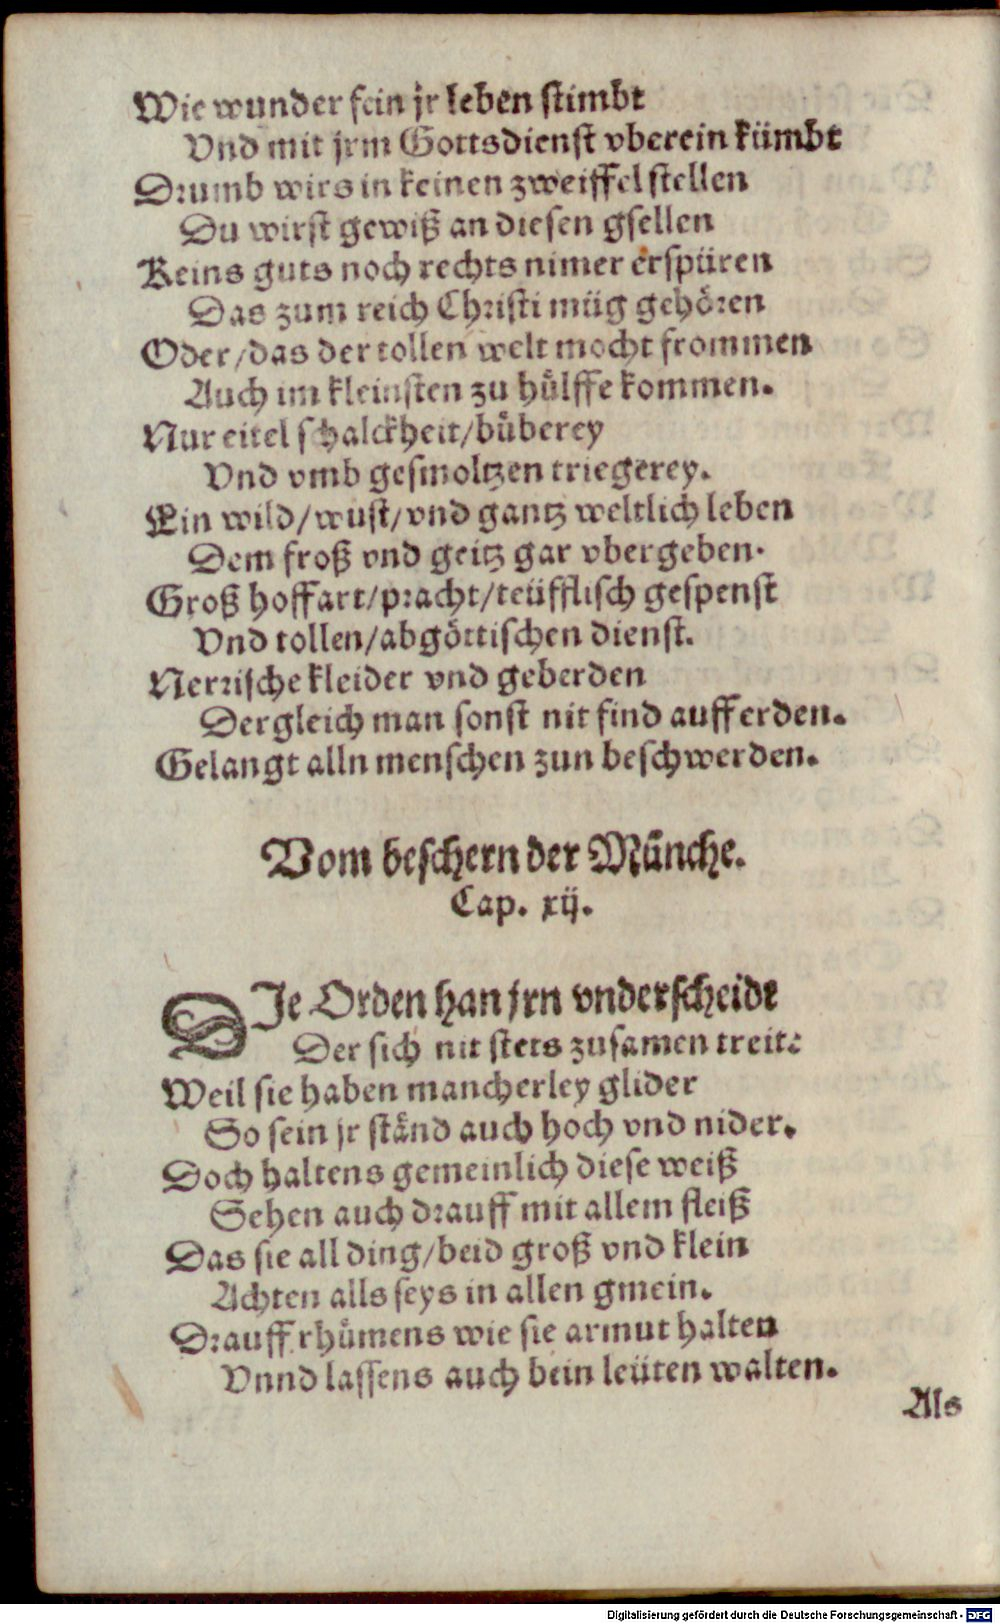 Wie wunder fein jr leben stimbt
Vnd mit jrm Gottsdienst vberein kümbt
Drumb wirs in keinen zweiffel stellen
Du wirst gewiß an diesen gsellen
Keins guts noch rechts nimer erspüren
Das zum reich Christi müg gehören
Oder/das der tollen welt mocht frommen
Auch im kleinsten zu hülffe kommen.
Nur eitel schalckheit/büberey
Vnd vmb gesmoltzen triegerey.
Ein wild/wust/vnd gantz weltlich leben
Dem froß vnd geitz gar vbergeben.
Groß hoffart/pracht/teüfflisch gespenst
Vnd tollen/abgöttischen dienst.
Nerrische kleider vnd geberden
Dergleich man sonst nit find auff erden.
Gelangt alln menschen zun beschwerden.
Vom beschern der Münche.
Cap. xij.
DIe Orden han jrn vnderscheidt
Der sich nit stets zusamen treit:
Weil sie haben mancherley glider
So sein jr ständ auch hoch vnd nider.
Doch haltens gemeinlich diese weiß
Sehen auch drauff mit allem fleiß
Das sie all ding/beid groß vnd klein
Achten alls seys in allen gmein.
Drauff rhümens wie sie armut halten
Vnnd lassens auch bein leüten walten.
Als
Digitalisierung gefördert durch die Deutsche Forschungsgemeinschaft - DFG